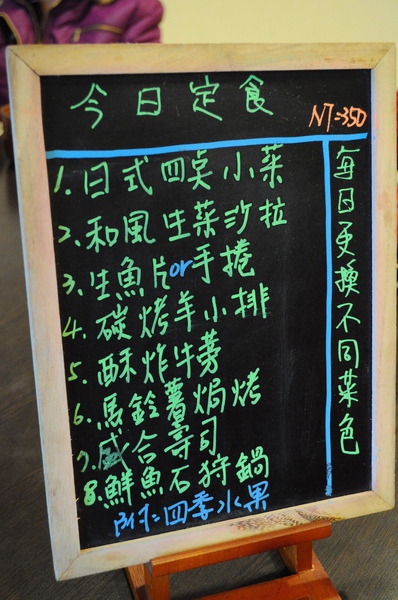 今日定食
NT=350
1.日式四点小菜
2.和風生菜沙拉
3.生魚片or手捲
4.碳烤羊小排
5.酥炸牛蒡
6.馬鈴薯焗烤
7.盛合壽司
8.鮮魚石狩鍋
附:四季水果
每日更換不同菜色